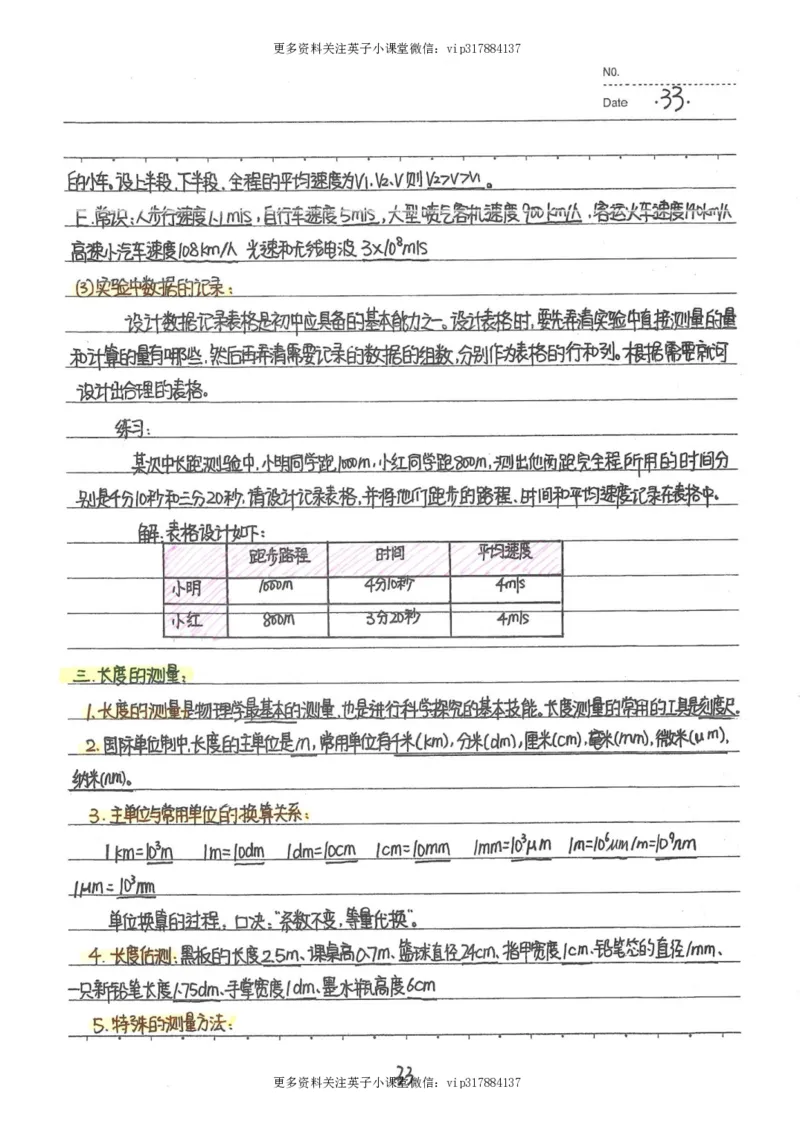 更多资料关注英子小课堂微信：vip317884137
NO.
Date ·33·
的小车。设上半段、下半段、全程的平均速度为V₁、V₂、V则V₂>V>V₁。
E.常识:人步行速度1.1m/s,自行车速度5m/s,大型喷气客机速度900km/h,客运火车速度140km/h
高速小汽车速度108km/h 光速和无线电波 3×10⁸m/s
(3)实验中数据的记录:
设计数据记录表格是初中应具备的基本能力之一。设计表格时,要先弄清实验中直接测量的量
和计算的量有哪些,然后再弄清需要记录的数据的组数,分别作为表格的行和列。根据需要就可
设计出合理的表格。
练习:
某次中长跑测验中,小明同学跑1000m,小红同学跑800m,测出他两跑完全程所用的时间分
别是4分10秒和三分20秒,请设计记录表格,并将他们跑步的路程、时间和平均速度记录在表格中。
解:表格设计如下:
跑步路程 时间 平均速度
小明 1000m 4分10秒 4m/s
小红 800m 3分20秒 4m/s
三.长度的测量:
1.长度的测量是物理学最基本的测量,也是进行科学探究的基本技能。长度测量的常用的工具是刻度尺。
2.国际单位制中,长度的主单位是m,常用单位有千米(km),分米(dm),厘米(cm),毫米(mm),微米(μm),
纳米(nm)。
3.主单位与常用单位的换算关系:
1km=10³m 1m=10dm 1dm=10cm 1cm=10mm 1mm=10³μm 1m=10⁶μm 1m=10⁹nm
1μm=10³nm
单位换算的过程:口决:"系数不变,等量代换"。
4.长度估测:黑板的长度2.5m、课桌高0.7m、篮球直径24cm、指甲宽度1cm、铅笔芯的直径1mm、
一只新铅笔长度1.75dm、手掌宽度1dm、墨水瓶高度6cm
5.特殊的测量方法:
33
更多资料关注英子小课堂微信：vip317884137